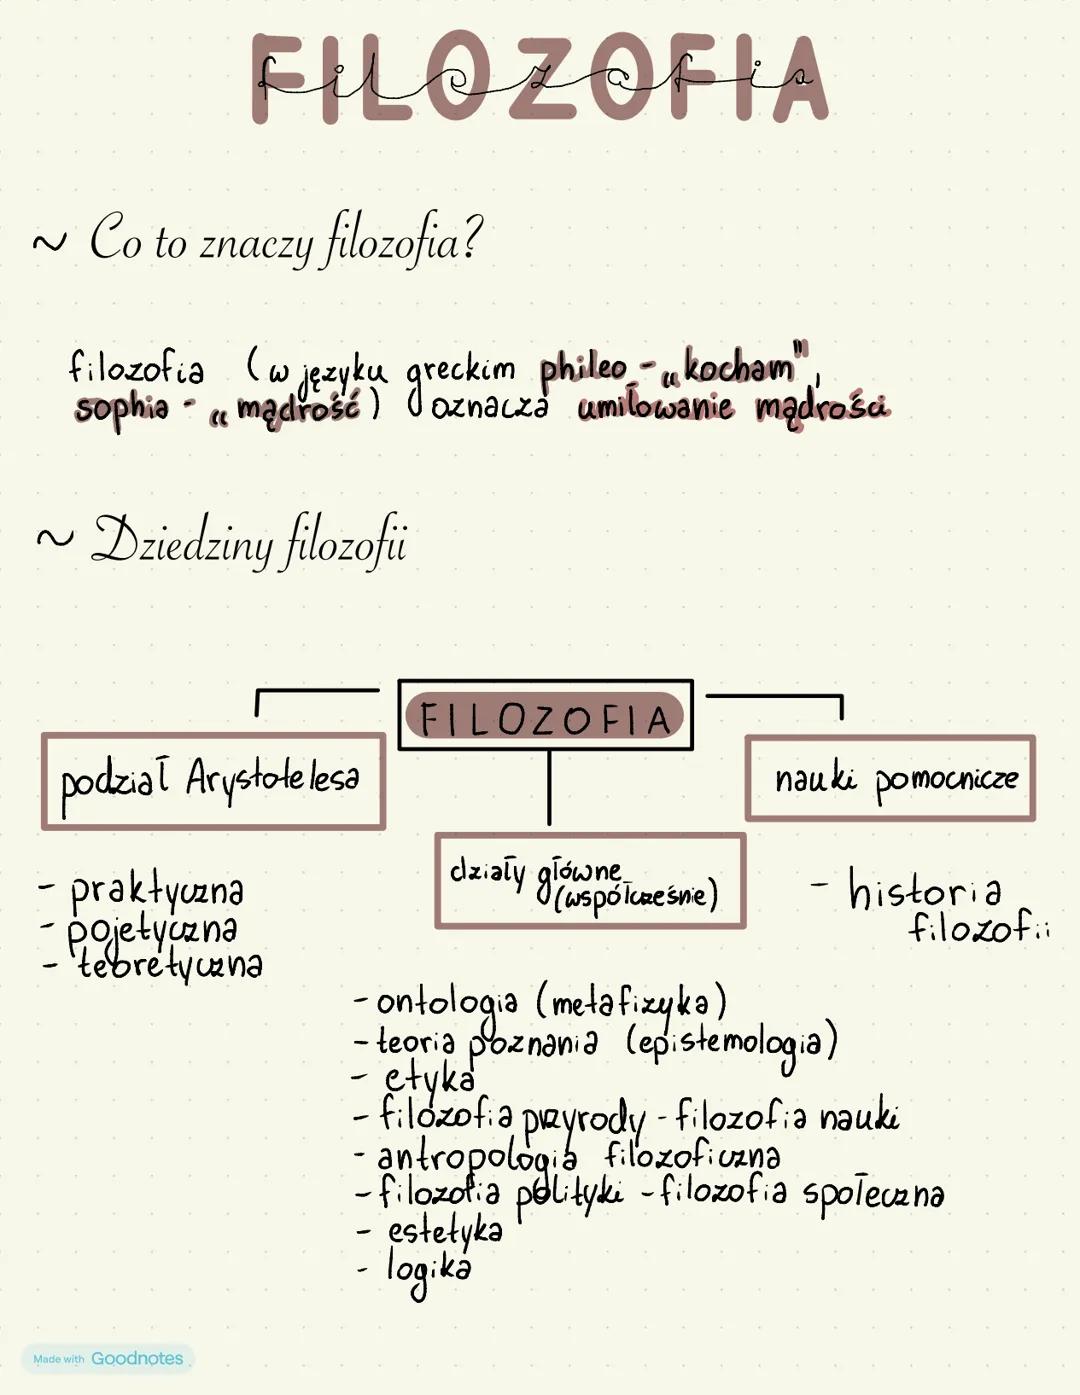 FILOZOFIA
filozofia
~ Co to znaczy filozofia?
filozofia (w języku greckim phileo - „kocham",
sophia - „mądrość) oznacza umiłowanie mądrości
~ Dziedziny filozofii
FILOZOFIA
podział Arystotelesa
nauki pomocnicze
działy główne
(współcześnie)
- praktyczna
- pojetyczna
- teoretyczna
- historia
filozofii
- ontologia (metafizyka)
- teoria poznania (epistemologia)
- etyka
- filozofia przyrody - filozofia nauki
- antropologia filozoficzna
- filozofia polityki - filozofia społeczna
- estetyka
- logika
Made with Goodnotes